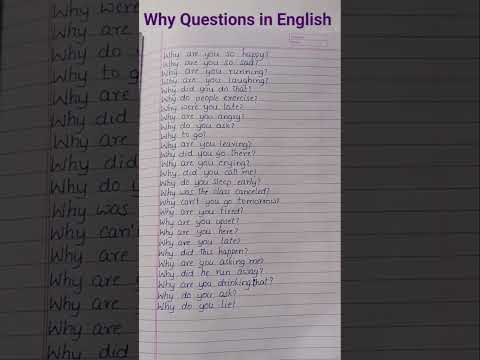 Why Questions in English
Why are you so happy?
Why are you so sad?
Why are you runining?
Why are you laughing?
Why did you do that?
Why do people exercise?
Why were you late?
Why are you angry?
Why do you ask?
Why to go?
Why are you leaving?
Why did you go there?
Why are you crying?
Why did you call me?
Why do you sleep early?
Why was the class canceled?
Why can't you go tomorrow?
Why are you tired?
Why are you upset?
Why are you here?
Why are you late?
Why did this happen?
Why are you asking me?
Why did he run away?
Why are you drinking that?
Why do you ask?
Why do you lie?